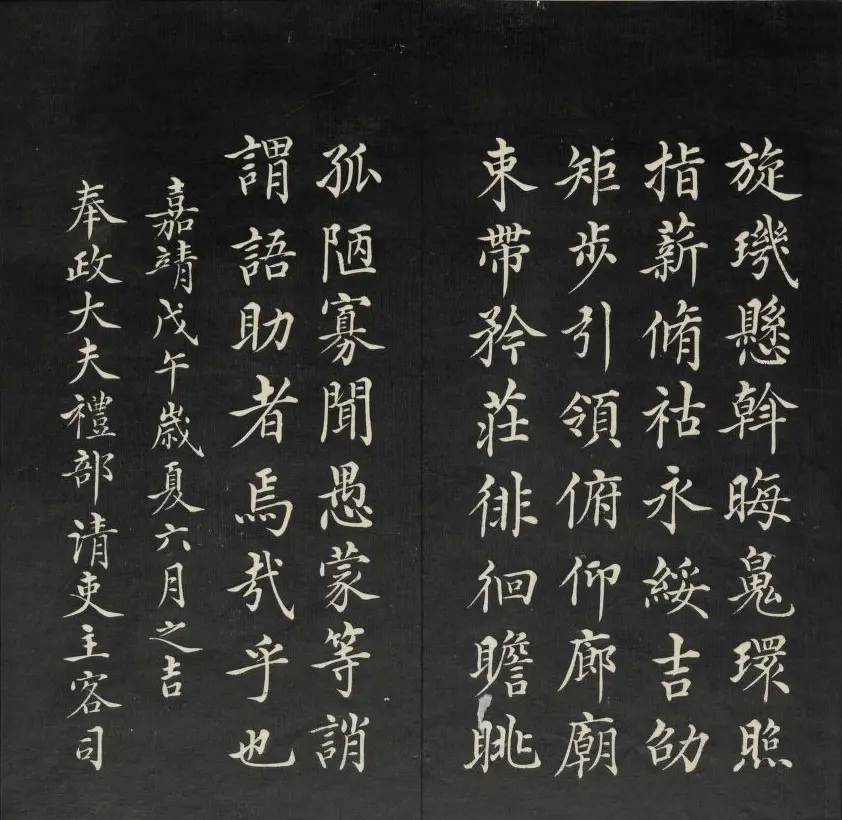 旋璣懸斡晦魄環照
指薪脩祜永綏吉劭
矩步引領俯仰廊廟
束帶矜莊徘徊瞻眺
孤陋寡聞愚蒙等誚
謂語助者焉哉乎也
嘉靖戊午歲夏六月之吉
奉政大夫禮部請吏主客司